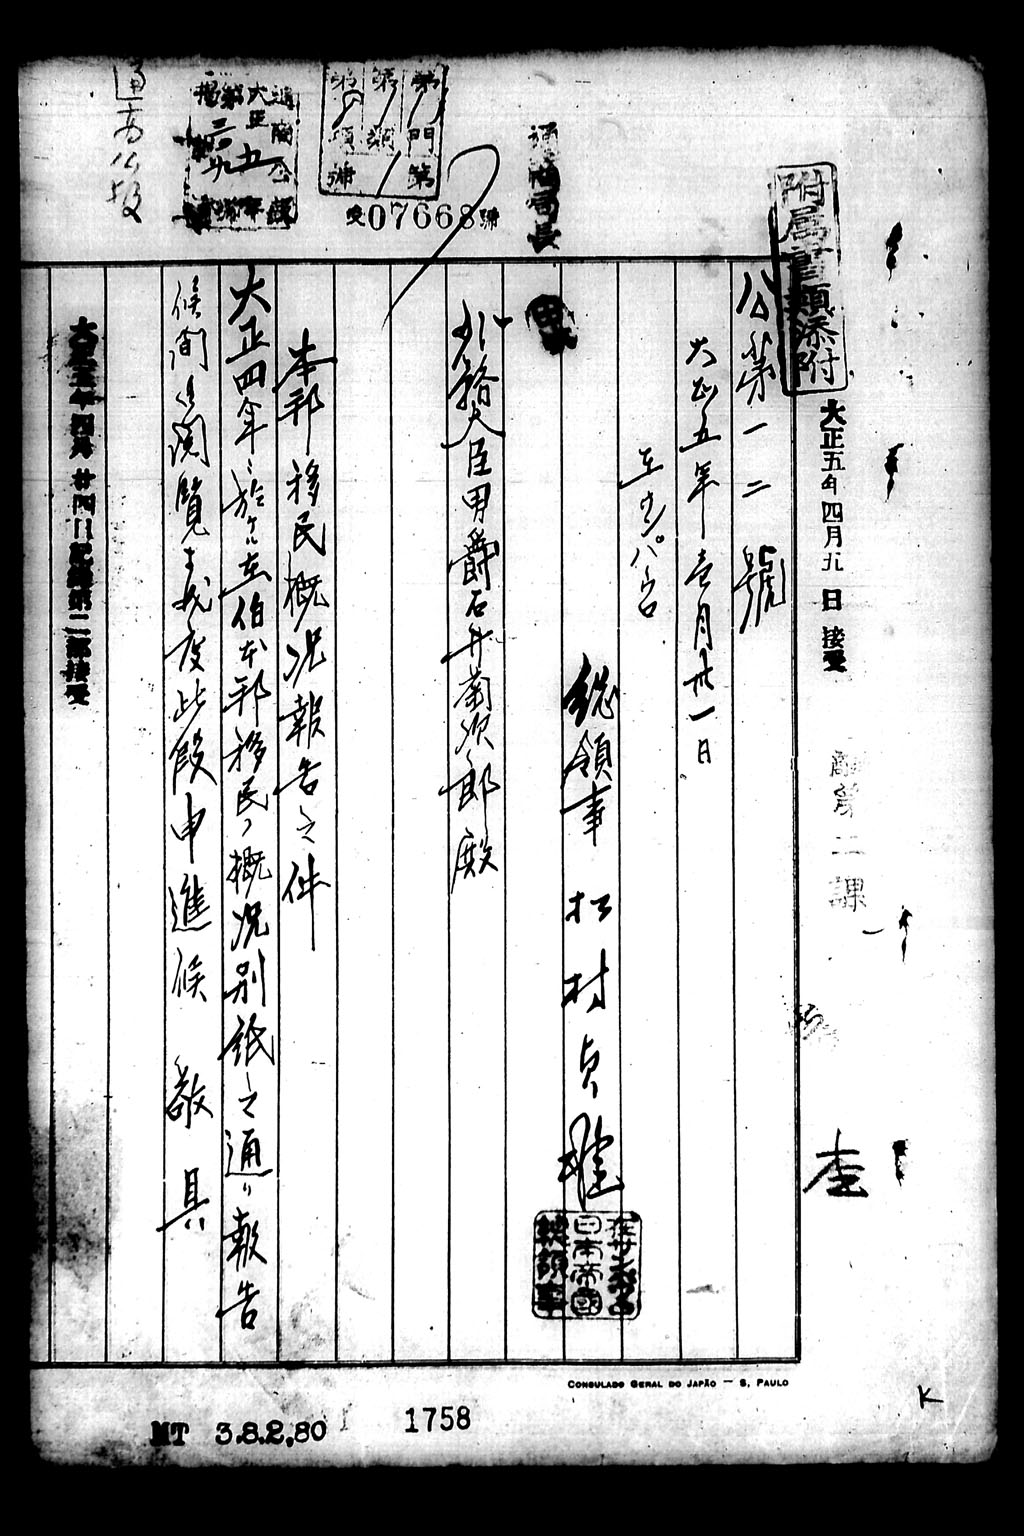 附属書類添付
大正五年四月九日接受
第二課
公第一二號
大正五年壱月卅一日
在サンパウロ
総領事 松村貞雄
在サンパウロ
日本帝國
総領事
通商局長
外務大臣男爵石井菊次郎殿
本邦移民概況報告之件
大正四年ニ於ケル在伯本邦移民ノ概況別紙之通リ報告
候間御閲覧相成度此段申進候 敬具
大正五年四月廿四日記録第二部接受
受07668號
第 門
第 類
第 項
通商公報
CONSULADO GERAL DO JAPÃO — S. PAULO
MT 3.8.2,80
1758
K